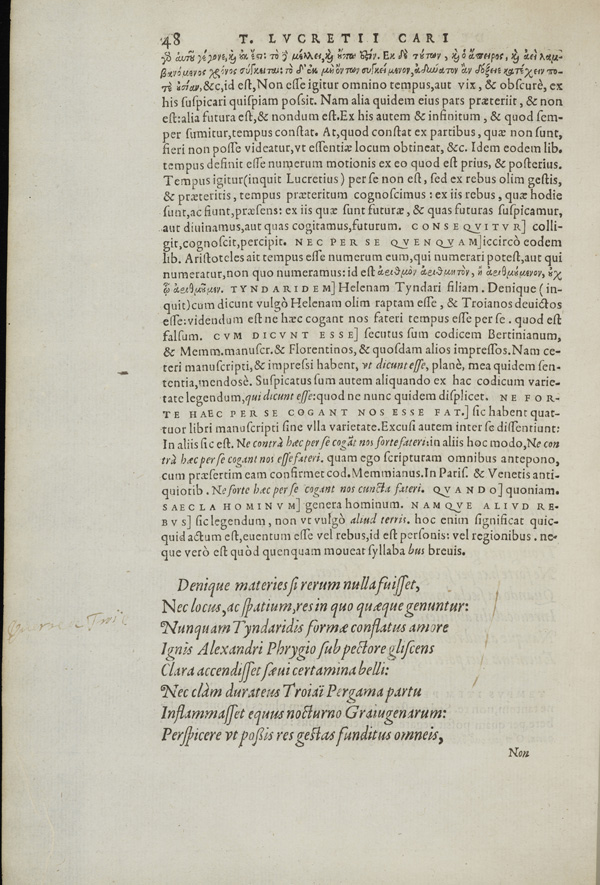 48 T. LVCRETII CARI
&c, id est, Non esse igitur omnino tempus, aut vix, & obscurè, ex
his suspicari quispiam possit. Nam alia quidem eius pars præteriit, & non
est: alia futura est, & nondum est. Ex his autem & infinitum, & quod sem-
per sumitur, tempus constat. At, quod constat ex partibus, quæ non sunt,
fieri non posse videatur, vt essentiæ locum obtineat, &c. Idem eodem lib.
tempus definit esse numerum motionis ex eo quod est prius, & posterius.
Tempus igitur (inquit Lucretius) per se non est, sed ex rebus olim gestis,
& præteritis, tempus præteritum cognoscimus: ex iis rebus, quæ hodie
sunt, ac fiunt, præsens: ex iis quæ sunt futuræ, & quas futuras suspicamur,
aut diuinamus, aut quas cogitamus, futurum. CONSEQVITVR] colli-
git, cognoscit, percipit. NEC PER SE QVENQVAM] iccircò eodem
lib. Aristoteles ait tempus esse numerum eum, qui numerari potest, aut qui
numeratur, non quo numeramus: id est ἀριθμὸν ἀριθμητὸν, ἢ ἀριθμούμενον, οὐχ
ᾧ ἀριθμοῦμεν. TYNDARIDEM] Helenam Tyndari filiam. Denique (in-
quit) cum dicunt vulgò Helenam olim raptam esse, & Troianos deuictos
esse: videndum est ne hæc cogant nos fateri tempus esse per se. quod est
falsum. CVM DICVNT ESSE] secutus sum codicem Bertinianum,
& Memm. manuscr. & Florentinos, & quosdam alios impressos. Nam ce-
teri manuscripti, & impressi habent, vt dicunt esse, planè, mea quidem sen-
tentia, mendosè. Suspicatus sum autem aliquando ex hac codicum varie-
tate legendum, qui dicunt esse: quod ne nunc quidem displicet. NE FOR-
TE HAEC PER SE COGANT NOS ESSE FAT.] sic habent quat-
tuor libri manuscripti sine vlla varietate. Excusi autem inter se dissentiunt:
In aliis sic est. Ne contrà hæc per se cogāt nos forte fateri: in aliis hoc modo, Ne con
trà hæc per se cogant nos esse fateri. quam ego scripturam omnibus antepono,
cum præsertim eam confirmet cod. Memmianus. In Paris. & Venetis anti-
quiotib. Ne forte hæc per se cogant nos cuncta fateri. QVANDO] quoniam.
SAECLA HOMINVM] genera hominum. NAMQVE ALIVD RE-
BVS] sic legendum, non vt vulgò aliud terris. hoc enim significat quic-
quid actum est, euentum esse vel rebus, id est personis: vel regionibus. ne-
que verò est quòd quenquam moueat syllaba bus breuis.
Denique materies si rerum nulla fuisset,
Nec locus, ac spatium, res in quo quæque genuntur:
Nunquam Tyndaridis formæ conflatus amore
Ignis Alexandri Phrygio sub pectore gliscens
Clara accendisset sæui certamina belli:
Nec clàm durateus Troiaï Pergama partu
Inflammasset equus nocturno Graiugenarum:
Perspicere vt possis res gestas funditus omneis,
Non